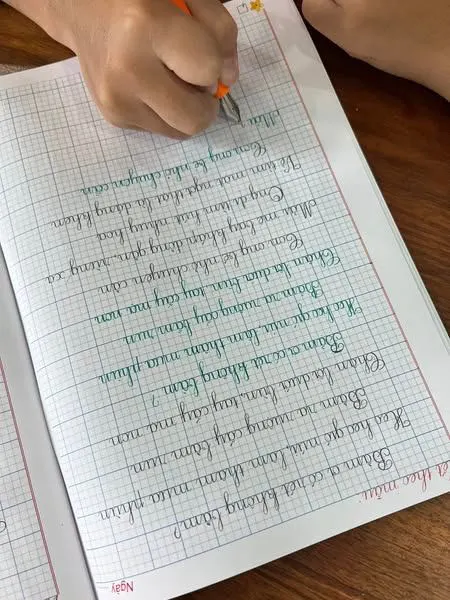 Ngày
theo mẫu:
Bầm ơi có rét không bầm?
Heo heo gió núi, lâm thâm mưa phùn
Bầm ra ruộng cấy bầm run
Chân lội dưới bùn, tay cấy mạ non
Bầm ơi có rét không bầm?
Heo heo gió núi, lâm thâm mưa phùn
Bầm ra ruộng cấy bầm run
Chân lội dưới bùn, tay cấy mạ non
Con ong bé nhỏ chuyên cần
Mải mê bay khắp đồng gần, rừng xa
Ong đi tìm hút nhụy hoa
Về làm mật ngọt thật là đáng khen
Con ong bé nhỏ chuyên cần
Mải